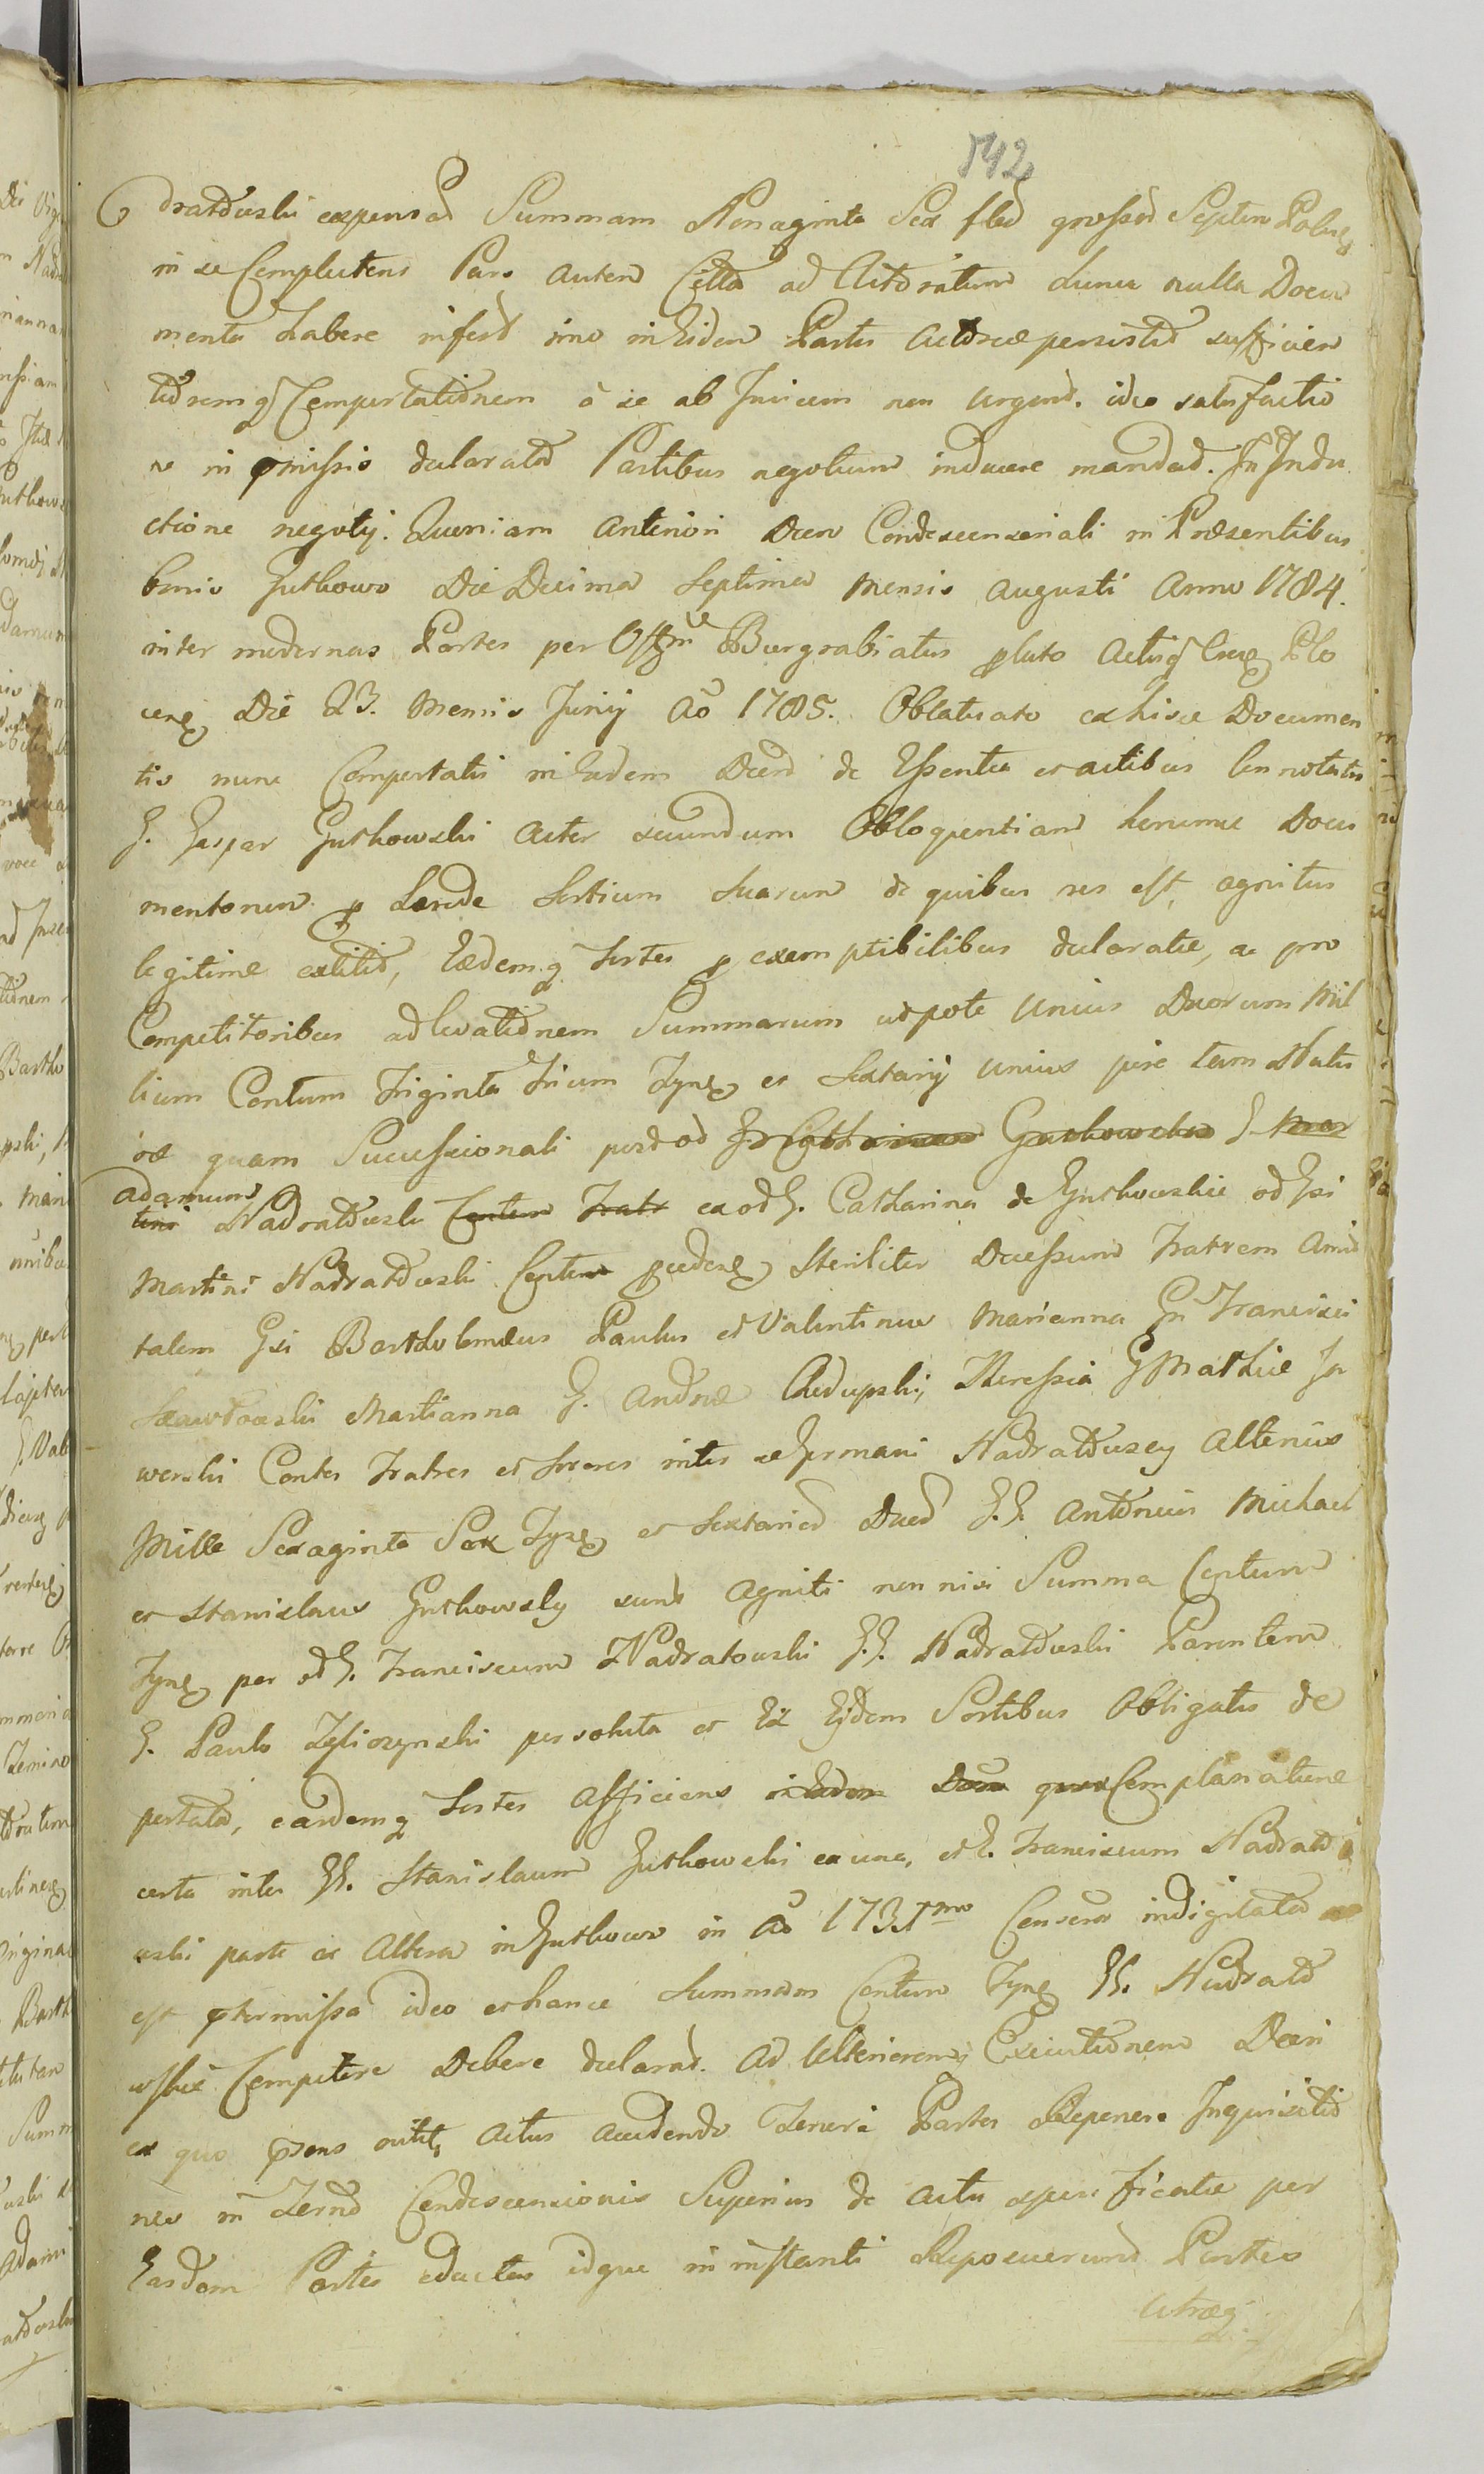 542
dratowski expensas Summam Nonaginta Sex flor grossos Septem Polnes
in se Complectens Pars autem Citta ad Actoratum Suum nulla Docu
menta Habere inferd imo in Eidem Partis Actoreæ persistid sufficien
tioremq Comportationem à se ab Invicem non urgend. ideo satisfactio
ne in præmissis declaratâ Partibus negotium inducere mandad. In Indu
ctione negotij. Quoniam anteriori Decro Condescensionali in Præsentibus
bonis Gutkowo Die Decima Septima Mensis Augusti Anno 1784.
inter modernas Partes per Offm Burgrabiatus prolato Actisq
cens Die 23. Mensis Junij Ao 1785. Oblatisato ex hisce Documen
tis nunc Comportatis in Eadem Decro de Essentia et actibus Connotatis
G. Gaspar Gutkowski Actor secundum Obloquentiam horumce Docu
mentorum. p Hærede Sortium Suarum de quibus res est, agnitus
legitime extitit, Eædemq Sortes p exemptibilibus declaratæ, ac pro
Competitoribus ad levationem Summarum utpote Unius Duorum Mil
lium Centum Triginta Trium Tyns et Sextarij Unius jure tam Natu
ræ quam Successionali post od Catharinam Gutkowska G. Mar
Adamum
tini Nadratowski Contem Fratr ex od G. Catharina de Gutkowskie od Gsi
Martini Nadratowski Contem Steriliter Decessum Fratrem Ami
talem Gsi Bartholomæus Paulus et Valentinus Marianna Gn Francisci
Marianna G. Andreæ Chudupski, Theressia G Mathiæ Ja
worski Contes Fratres et Sorores inter se Germani Nadratowscy Alterius
Mille Sexaginta Sex Tyns et Sextarior Duor G.G. Antonius Michael
et Stanislaus Gutkowscy sunt Agniti non nisi Summa Centum
Tyns per od G. Franciscum Nadratowski G.G. Nadratowski Parentem
G. Paulo persoluta et Ex Eisdem Sortibus Obligatis de
portata, easdemq Sortes Afficiens in Eadem Decro Complanatione
certa inter GG. Stanislaum Gutkowski ex una, et G. Franciscum Nadrato
wski parte ex Altera in Gutkowo in Ao 1731mo Censero indigitata
est ptermissa ideo et hance Summam Centum Tyns GG. Nadrato
wskie Competere Debere declarad. Ad Ulteriorem Executionem Decri
ex quo præsens Actus accedendo Teneri Partes Reponere Inquisitio
nes in Termo Condescensionis Superius de actu specificatæ per
Easdem Partes eductas idque in instanti Reposuerund Partes
Utræq